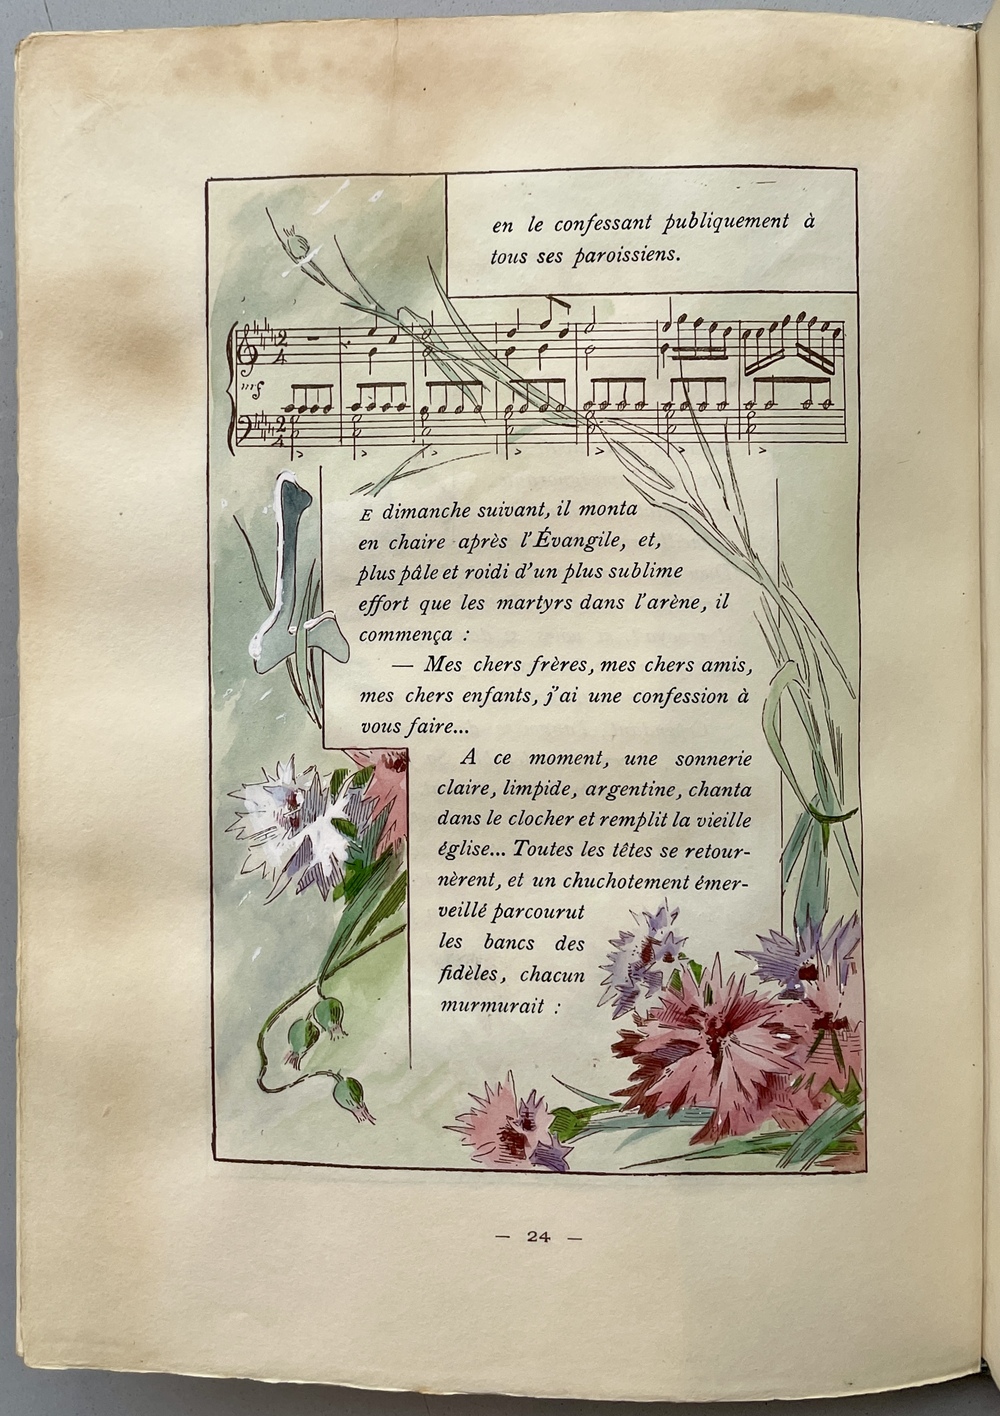 en le confessant publiquement à
tous ses paroissiens.
2
4
mf
2
4
LE dimanche suivant, il monta
en chaire après l'Évangile, et,
plus pâle et roidi d'un plus sublime
effort que les martyrs dans l'arène, il
commença :
— Mes chers frères, mes chers amis,
mes chers enfants, j'ai une confession à
vous faire...
A ce moment, une sonnerie
claire, limpide, argentine, chanta
dans le clocher et remplit la vieille
église... Toutes les têtes se retour-
nèrent, et un chuchotement émer-
veillé parcourut
les bancs des
fidèles, chacun
murmurait :
— 24 —